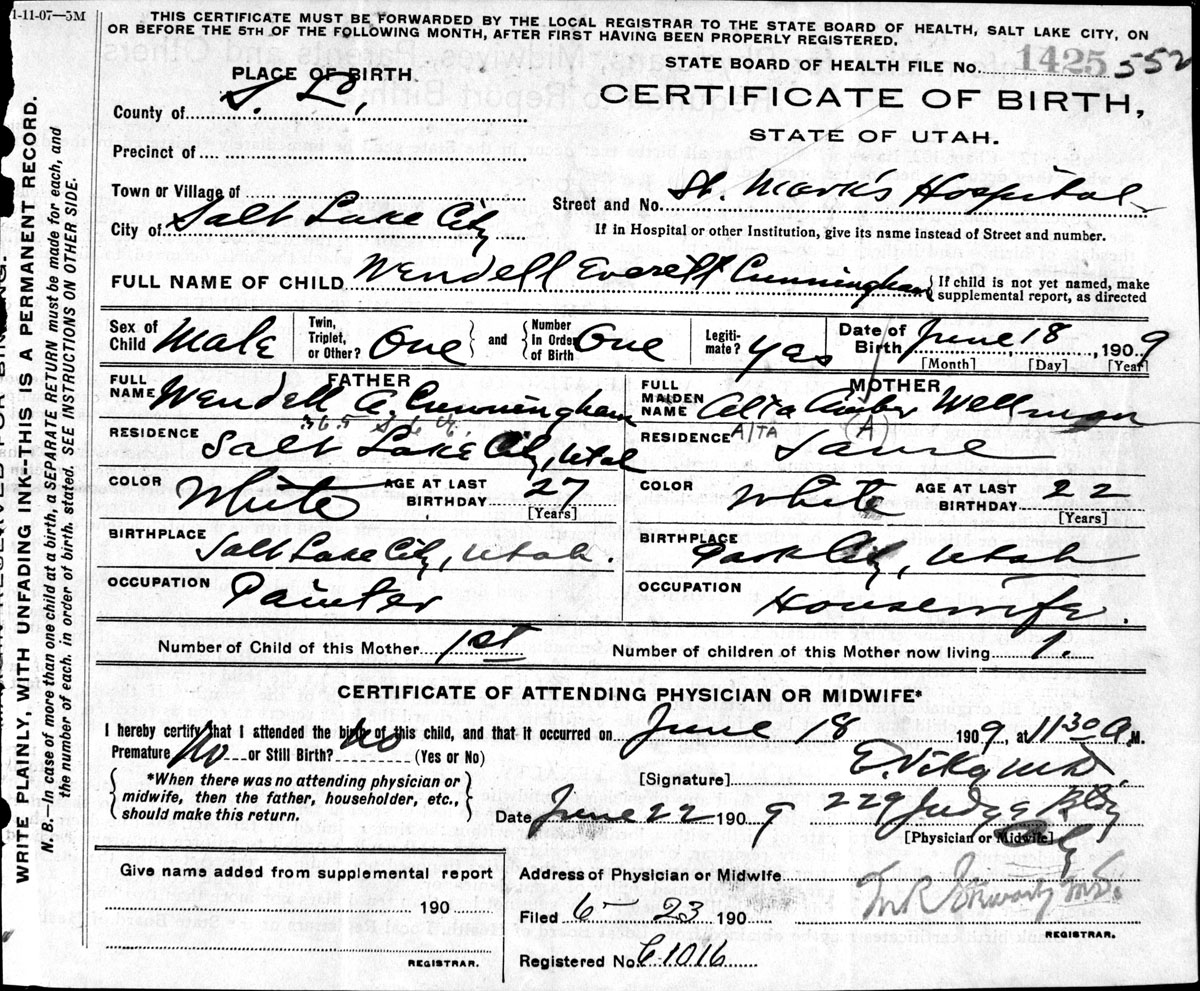 1-11-07—5M
THIS CERTIFICATE MUST BE FORWARDED BY THE LOCAL REGISTRAR TO THE STATE BOARD OF HEALTH, SALT LAKE CITY, ON
OR BEFORE THE 5TH OF THE FOLLOWING MONTH, AFTER FIRST HAVING BEEN PROPERLY REGISTERED.
WRITE PLAINLY, WITH UNFADING INK--THIS IS A PERMANENT RECORD.
N. B.—In case of more than one child at a birth, a SEPARATE RETURN must be made for each, and
the number of each, in order of birth, stated. SEE INSTRUCTIONS ON OTHER SIDE.
STATE BOARD OF HEALTH FILE No. 1425 552
CERTIFICATE OF BIRTH,
STATE OF UTAH.
PLACE OF BIRTH.
County of S. L.
Precinct of
Town or Village of
City of Salt Lake City
Street and No. St. Mark's Hospital
If in Hospital or other Institution, give its name instead of Street and number.
FULL NAME OF CHILD Wendell Everett Cunningham { If child is not yet named, make
supplemental report, as directed
Sex of Child Male
Twin, Triplet, or Other? One } and { Number In Order of Birth One
Legitimate? yas
Date of Birth June 18, 1909
[Month] [Day] [Year]
FATHER
FULL NAME Wendell A. Cunningham
RESIDENCE Salt Lake City, Utah
COLOR White AGE AT LAST BIRTHDAY 27
[Years]
BIRTHPLACE Salt Lake City, Utah.
OCCUPATION Painter
MOTHER
FULL MAIDEN NAME Alta Wellman
RESIDENCE Alta (A) Same
COLOR White AGE AT LAST BIRTHDAY 22
[Years]
BIRTHPLACE Park City, Utah
OCCUPATION Housewife.
Number of Child of this Mother 1st Number of children of this Mother now living 1.
CERTIFICATE OF ATTENDING PHYSICIAN OR MIDWIFE*
I hereby certify that I attended the birth of this child, and that it occurred on June 18 1909, at 11 30 A. M.
Premature No or Still Birth? No (Yes or No)
{ *When there was no attending physician or
midwife, then the father, householder, etc.,
should make this return. }
[Signature]
Date June 22 1909 229 Judge Bldg
[Physician or Midwife]
City
Give name added from supplemental report
190
REGISTRAR.
Address of Physician or Midwife
Filed 6- 23 190
REGISTRAR.
Registered No. C1016